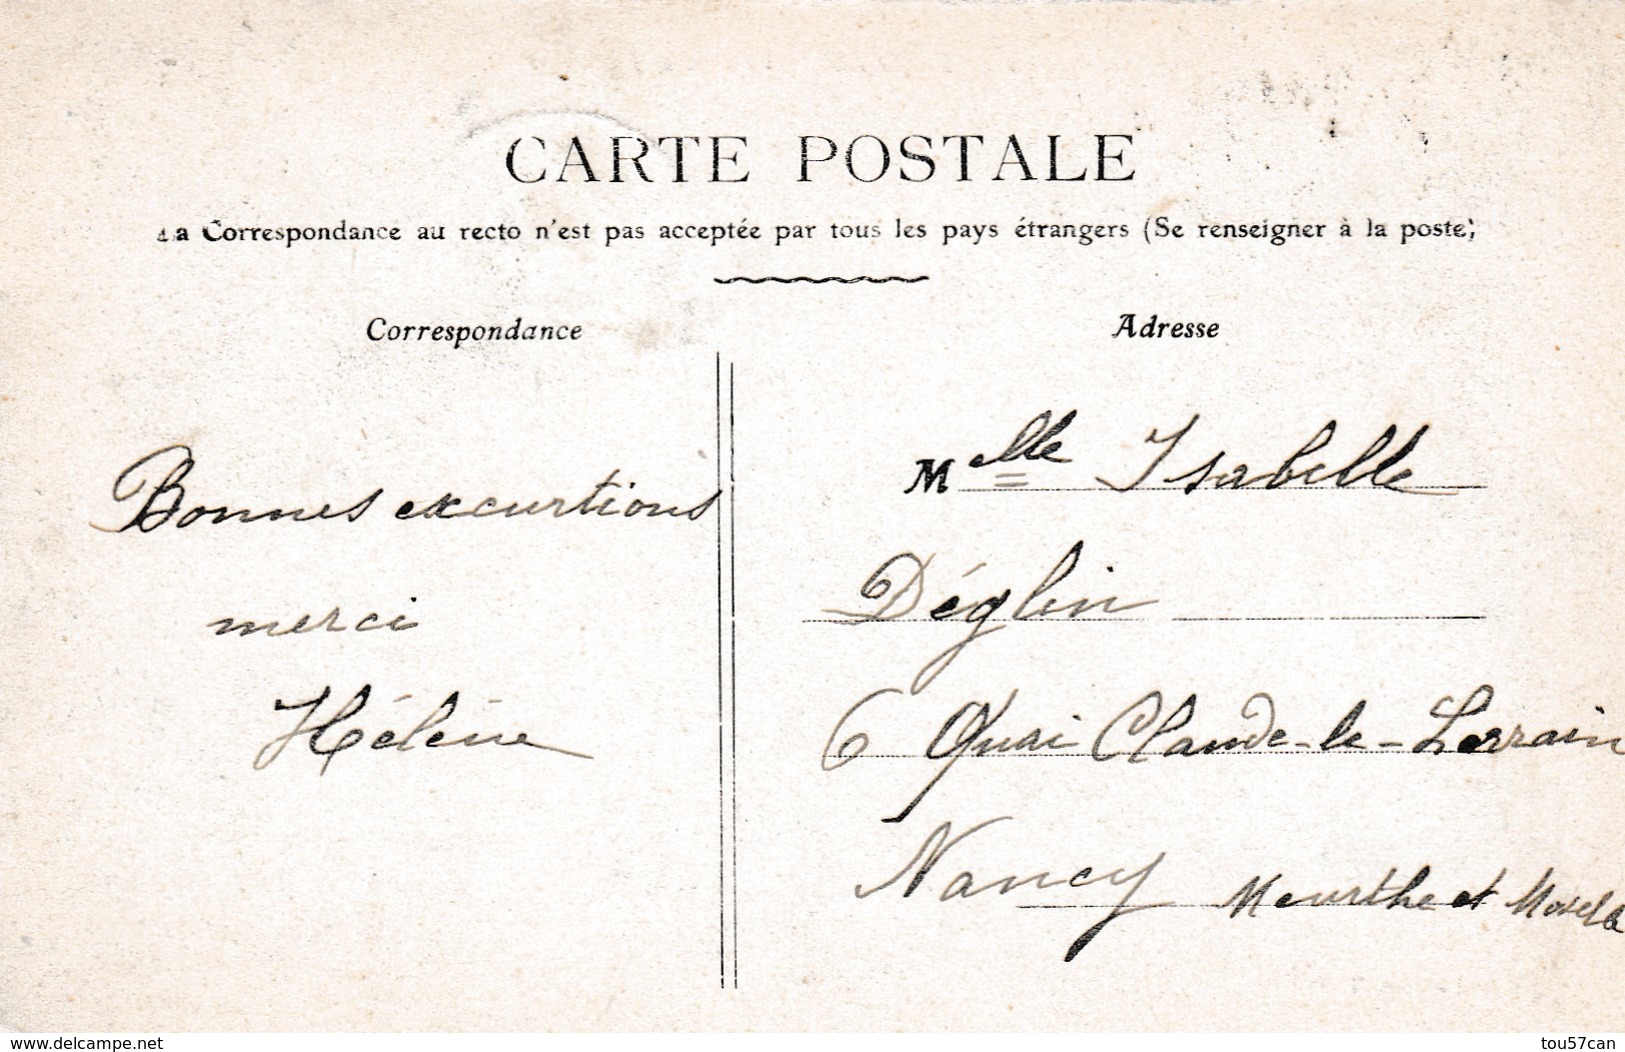 CARTE POSTALE
La Correspondance au recto n'est pas acceptée par tous les pays étrangers (Se renseigner à la poste)
Correspondance
Bonnes excurtions
merci
Hélène
Adresse
Melle Isabelle
Déglin
6 Quai Claude-le-Lorrain
Nancy Meurthe et Moselle
www.delcampe.net
tou57can